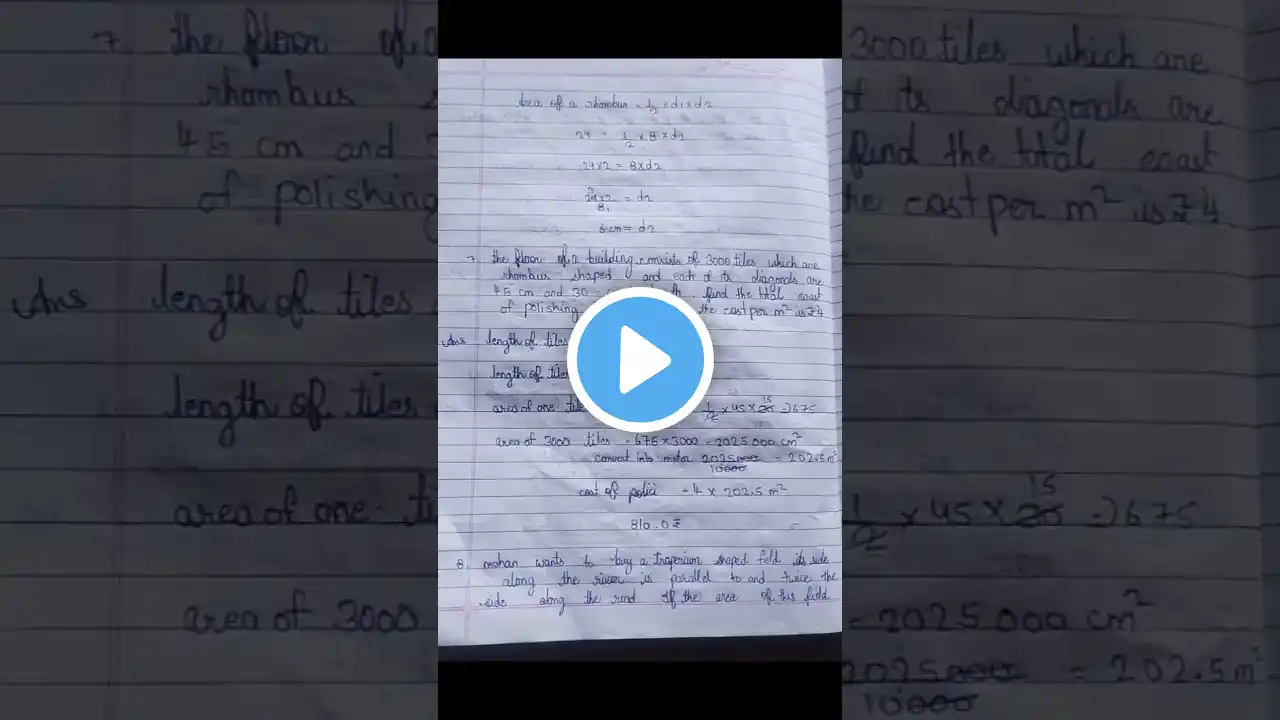 Area of a rhombus = 1/2 × d1 × d2
24 = 1/2 × 8 × d2
24×2 = 8×d2
3
24×2 / 8 1 = d2
6 cm = d2
7. the floor of a building consists of 3000 tiles which are
rhombus shaped and each of its diagonals are
45 cm and 30 find the total coast
of polishing the cost per m² is ₹4
Ans length of tiles
length of tiles
area of one tile 1/2 × 45 × 15 ⇒ 675
area of 3000 tiles = 675 × 3000 = 2025000 cm²
convert into meter 2025000 / 10000 = 202.5 m²
cost of polici = 4 × 202.5 m²
810.0 ₹
8. mohan wants to buy a traperium shaped feld its side
along the river is parallel to and twice the
side along the road If the area of this field